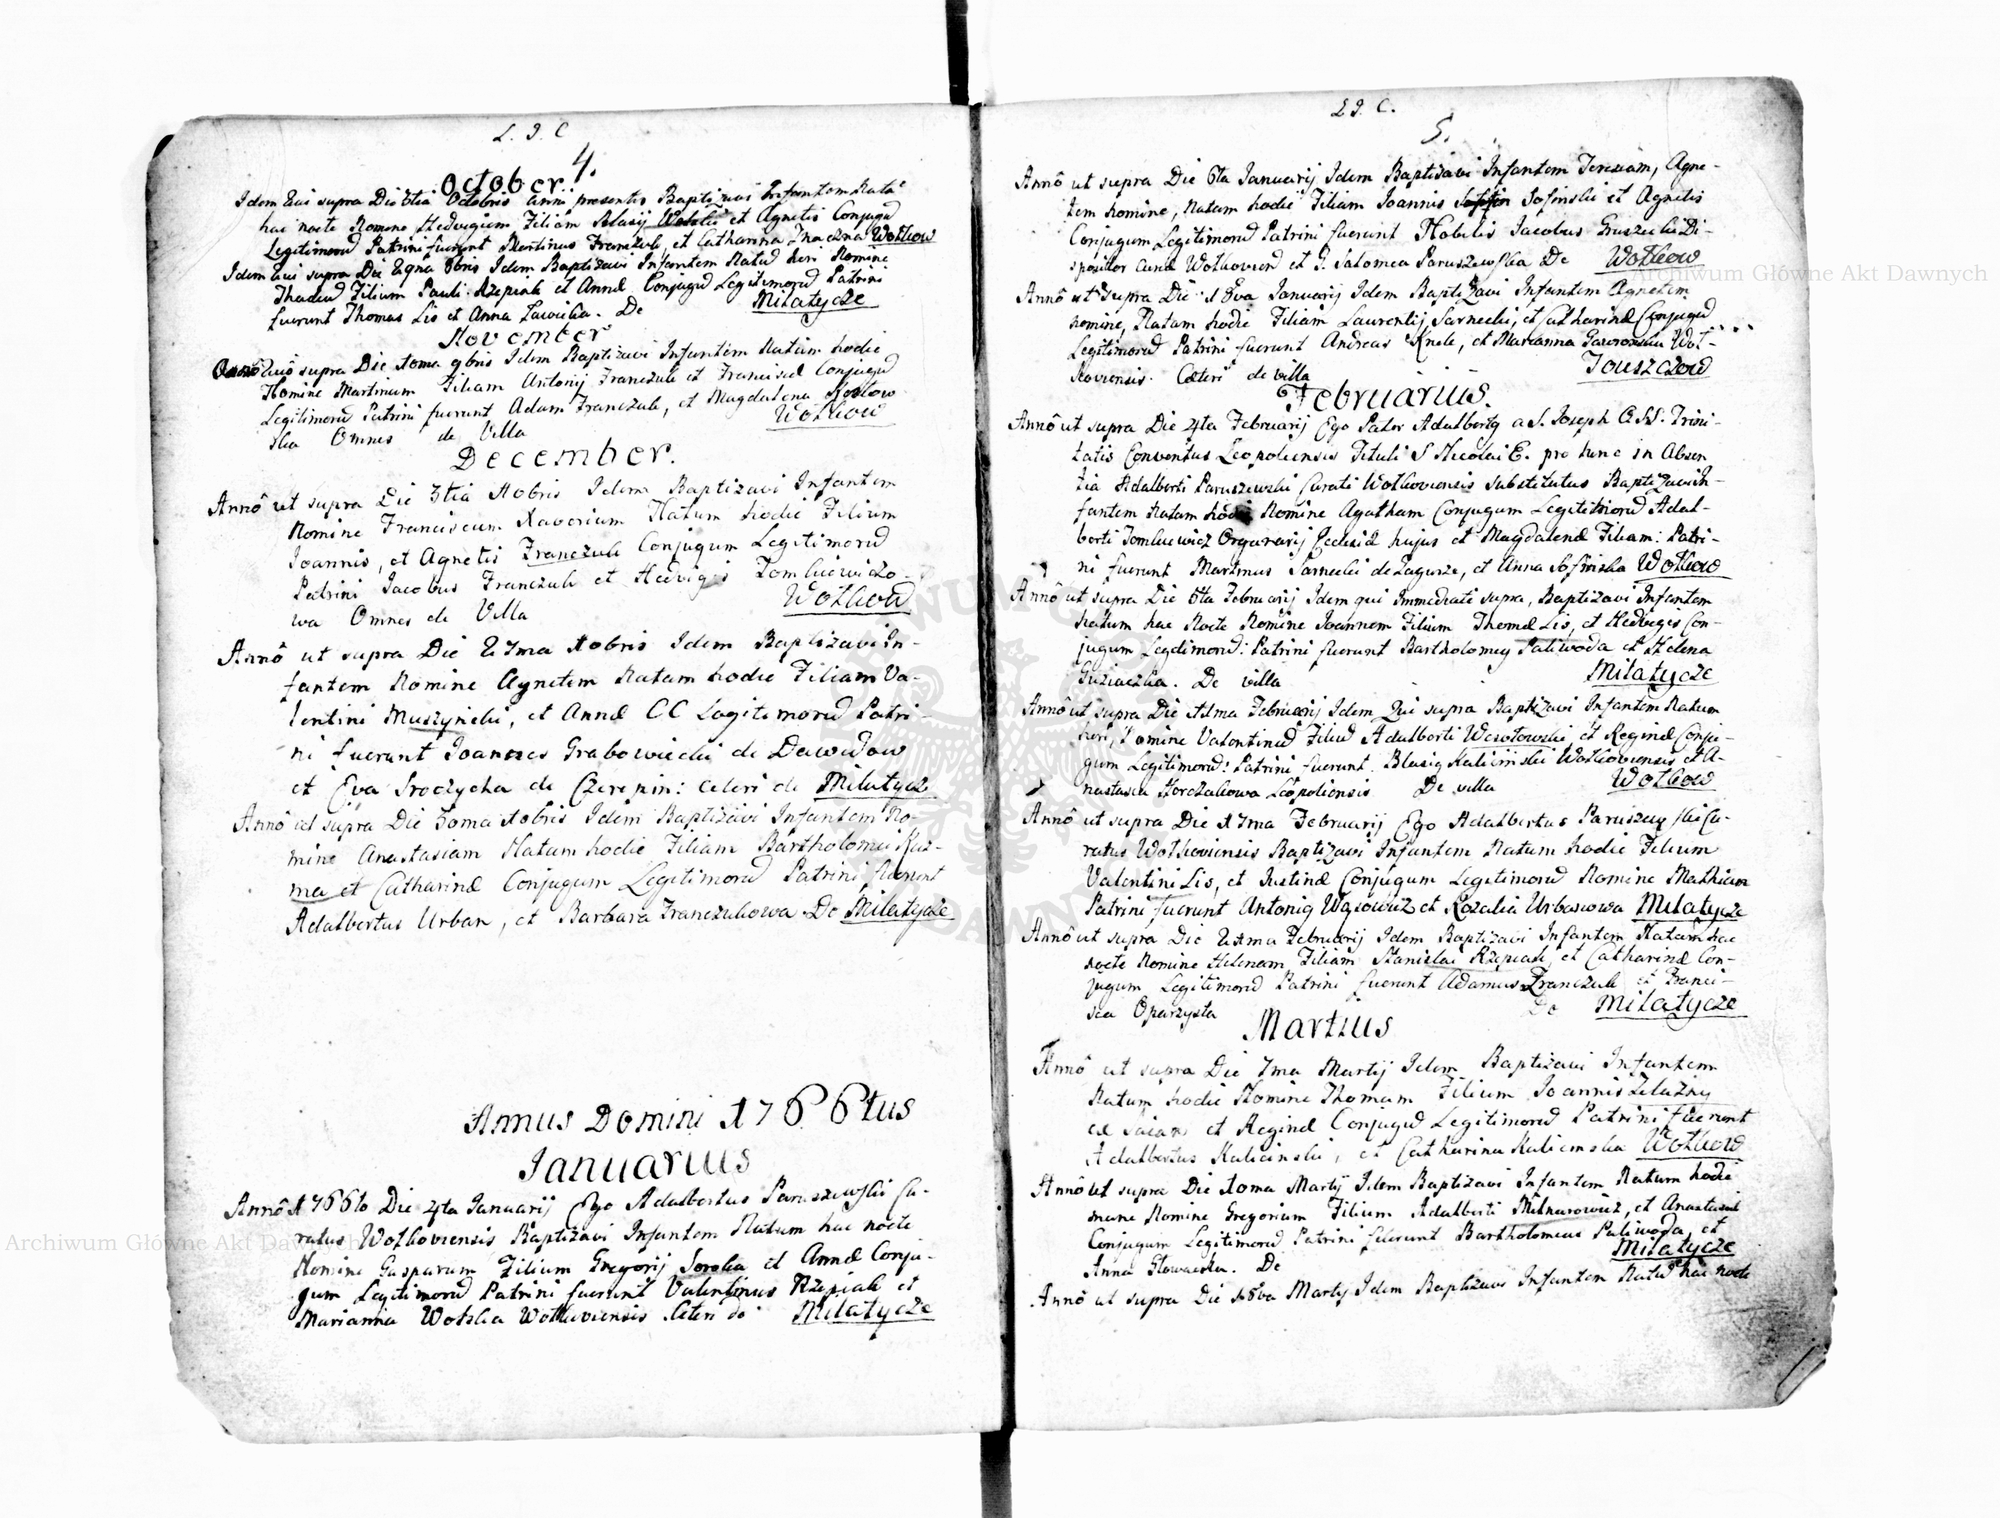 L. J. C
4.
October.
Idem qui supra Die 3tia Octobris anni presentis Baptizavi Infantem Natã
hac nocte Nomine Hedvigem Filiam Blasij et Agnetis Conjugũ
Legitimorũ Patrini fuerunt Martinus Franczuk, et Catharina Wołkow
Idem qui supra Die 8bris Idem Baptizavi Infantem Natũ heri Nomine
Thadeũ Filium Pauli Rzepiak et Annæ Conjugũ Legitimorũ Patrini
fuerunt Thomas Lis et Anna De Miłatycze
November
Annô quô supra Die 10ma 9bris Idem Baptizavi Infantem Natum hodie
Nomine Martinum Filium Antonij Franczuk et Franciscæ Conjugũ
Legitimorũ Patrini fuerunt Adam Franczuk, et Magdalena Kozłow
ska Omnes de Villa Wołkow
December.
Annô ut supra Die 3tia Xobris Idem Baptizavi Infantem
Nomine Franciscum Xaverium Natum hodie Filium
Joannis, et Agnetis Franczuk Conjugum Legitimorũ
Patrini Jacobus Franczuk et Hedvigis Tomkiewiczo
wa Omnes de Villa Wołkow
Annô ut supra Die 27ma Xobris Idem Baptizavi In-
fantem Nomine Agnetem Natam hodie Filiam Va-
lentini Muszyński, et Annæ CC Legitimorũ Patri-
ni fuerunt Joannes Grabowiecki de Dawidow
et Eva Sroczycha de Czerepin: Ceteri de Miłatycz
Annô ut supra Die 30ma Xobris Idem Baptizavi Infantem No-
mine Anastasiam Natam hodie Filiam Bartholomei Kuz-
ma et Catharinæ Conjugum Legitimorũ Patrini fuerunt
Adalbertus Urban, et Barbara Franczukowa De Miłatycze
Annus Domini 1766tus
Januarius
Annô 1766to Die 4ta Januarij Ego Adalbertus Paruszewski Cu-
ratus Wołkoviensis Baptizavi Infantem Natum hac nocte
Nomine Gasparum Filium Gregorij Soroka et Annæ Conju-
gum Legitimorũ Patrini fuerunt Valentinus Rzepiak et
Marianna Wołkoviensis Ceteri de Miłatycze
LJ. C.
5.
Annô ut supra Die 6ta Januarij Idem Baptizavi Infantem Teresiam, Agne-
tem nomine, Natam hodie Filiam Joannis Sofinski et Agnetis
Conjugum Legitimorũ Patrini fuerunt Nobilis Jacobus Gruszecki Di-
spositor et Salomea Paruszewska De Wołkow
Annô ut supra Die 18va Januarij Idem Baptizavi Infantem Agnetem
nomine, Natam hodie Filiam Laurentij Sarnecki, et Catharinæ Conjugũ
Legitimorũ Patrini fuerunt Andreas Knele, et Marianna Woł-
koviensis. Cæteri de villa Touszczow
Februarius.
Annô ut supra Die 4ta Februarij Ego Pater Adalbertg a S. Joseph O. SS: Trini-
tatis Conventus Leopoliensis Tituli S Nicolai E. pro tunc in Absen
tia Adalberti Paruszewski Curati Wołkoviensis substitutus Baptizavi In-
fantem Natam hodie Nomine Agatham Conjugum Legitimorũ Adal-
berti Tomkiewicz Organarij Ecclesiæ hujus et Magdalenæ Filiam: Patri-
ni fuerunt Martinus Sarnecki de Zagurze, et Anna Sofinska Wołkow
Annô ut supra Die 6ta Februarij Idem qui Immediate supra, Baptizavi Infantem
Natum hac Nocte Nomine Joannem Filium Thomæ Lis, et Hedvigis Con-
jugum Legitimorũ: Patrini fuerunt Bartholomeg Paliwoda et Helena
Guziaczka. De villa Miłatycze
Annô ut supra Die 11ma Februarij Idem Qui supra Baptizavi Infantem Natum
heri, Nomine Valentinũ Filiũ Adalberti Wesołowski et Reginæ Conju-
gum Legitimorũ: Patrini fuerunt. Blasig Kaliciński Wołkoviensis et A-
nastasia Horczakowa Leopoliensis De villa Wołkow
Annô ut supra Die 17ma Februarij Ego Adalbertus Paruszewski Cu-
ratus Wołkoviensis Baptizavi Infantem Natum hodie Filium
Valentini Lis, et Justinæ Conjugum Legitimorũ Nomine Mathiam
Patrini fuerunt Antonig Wąsowicz et Rozalia Urbanowa Miłatycze
Annô ut supra Die 21ma Februarij Idem Baptizavi Infantem Natam hac
nocte Nomine Helenam Filiam Stanislai Rzepiak, et Catharinæ Con-
jugum Legitimorũ Patrini fuerunt Adamus Franczuk et Franci-
sca Oparzysta De Miłatycze
Martius
Annô ut supra Die 7ma Martij Idem Baptizavi Infantem
Natum hodie Nomine Thomam Filium Joannis Zelazny
et Reginæ Conjugũ Legitimorũ Patrini fuerunt
Adalbertus Kaliciński, et Catharina Kalicinska Wołkow
Annô ut supra Die 10ma Martij Idem Baptizavi Infantem Natum hodie
mane Nomine Gregorium Filium Adalberti Miknarowicz, et Anastasiæ
Conjugum Legitimorũ Patrini fuerunt Bartholomeus Paliwoda, et
Anna Głowacka. De Miłatycze
Annô ut supra Die 18va Martij Idem Baptizavi Infantem Natũ hac nocte